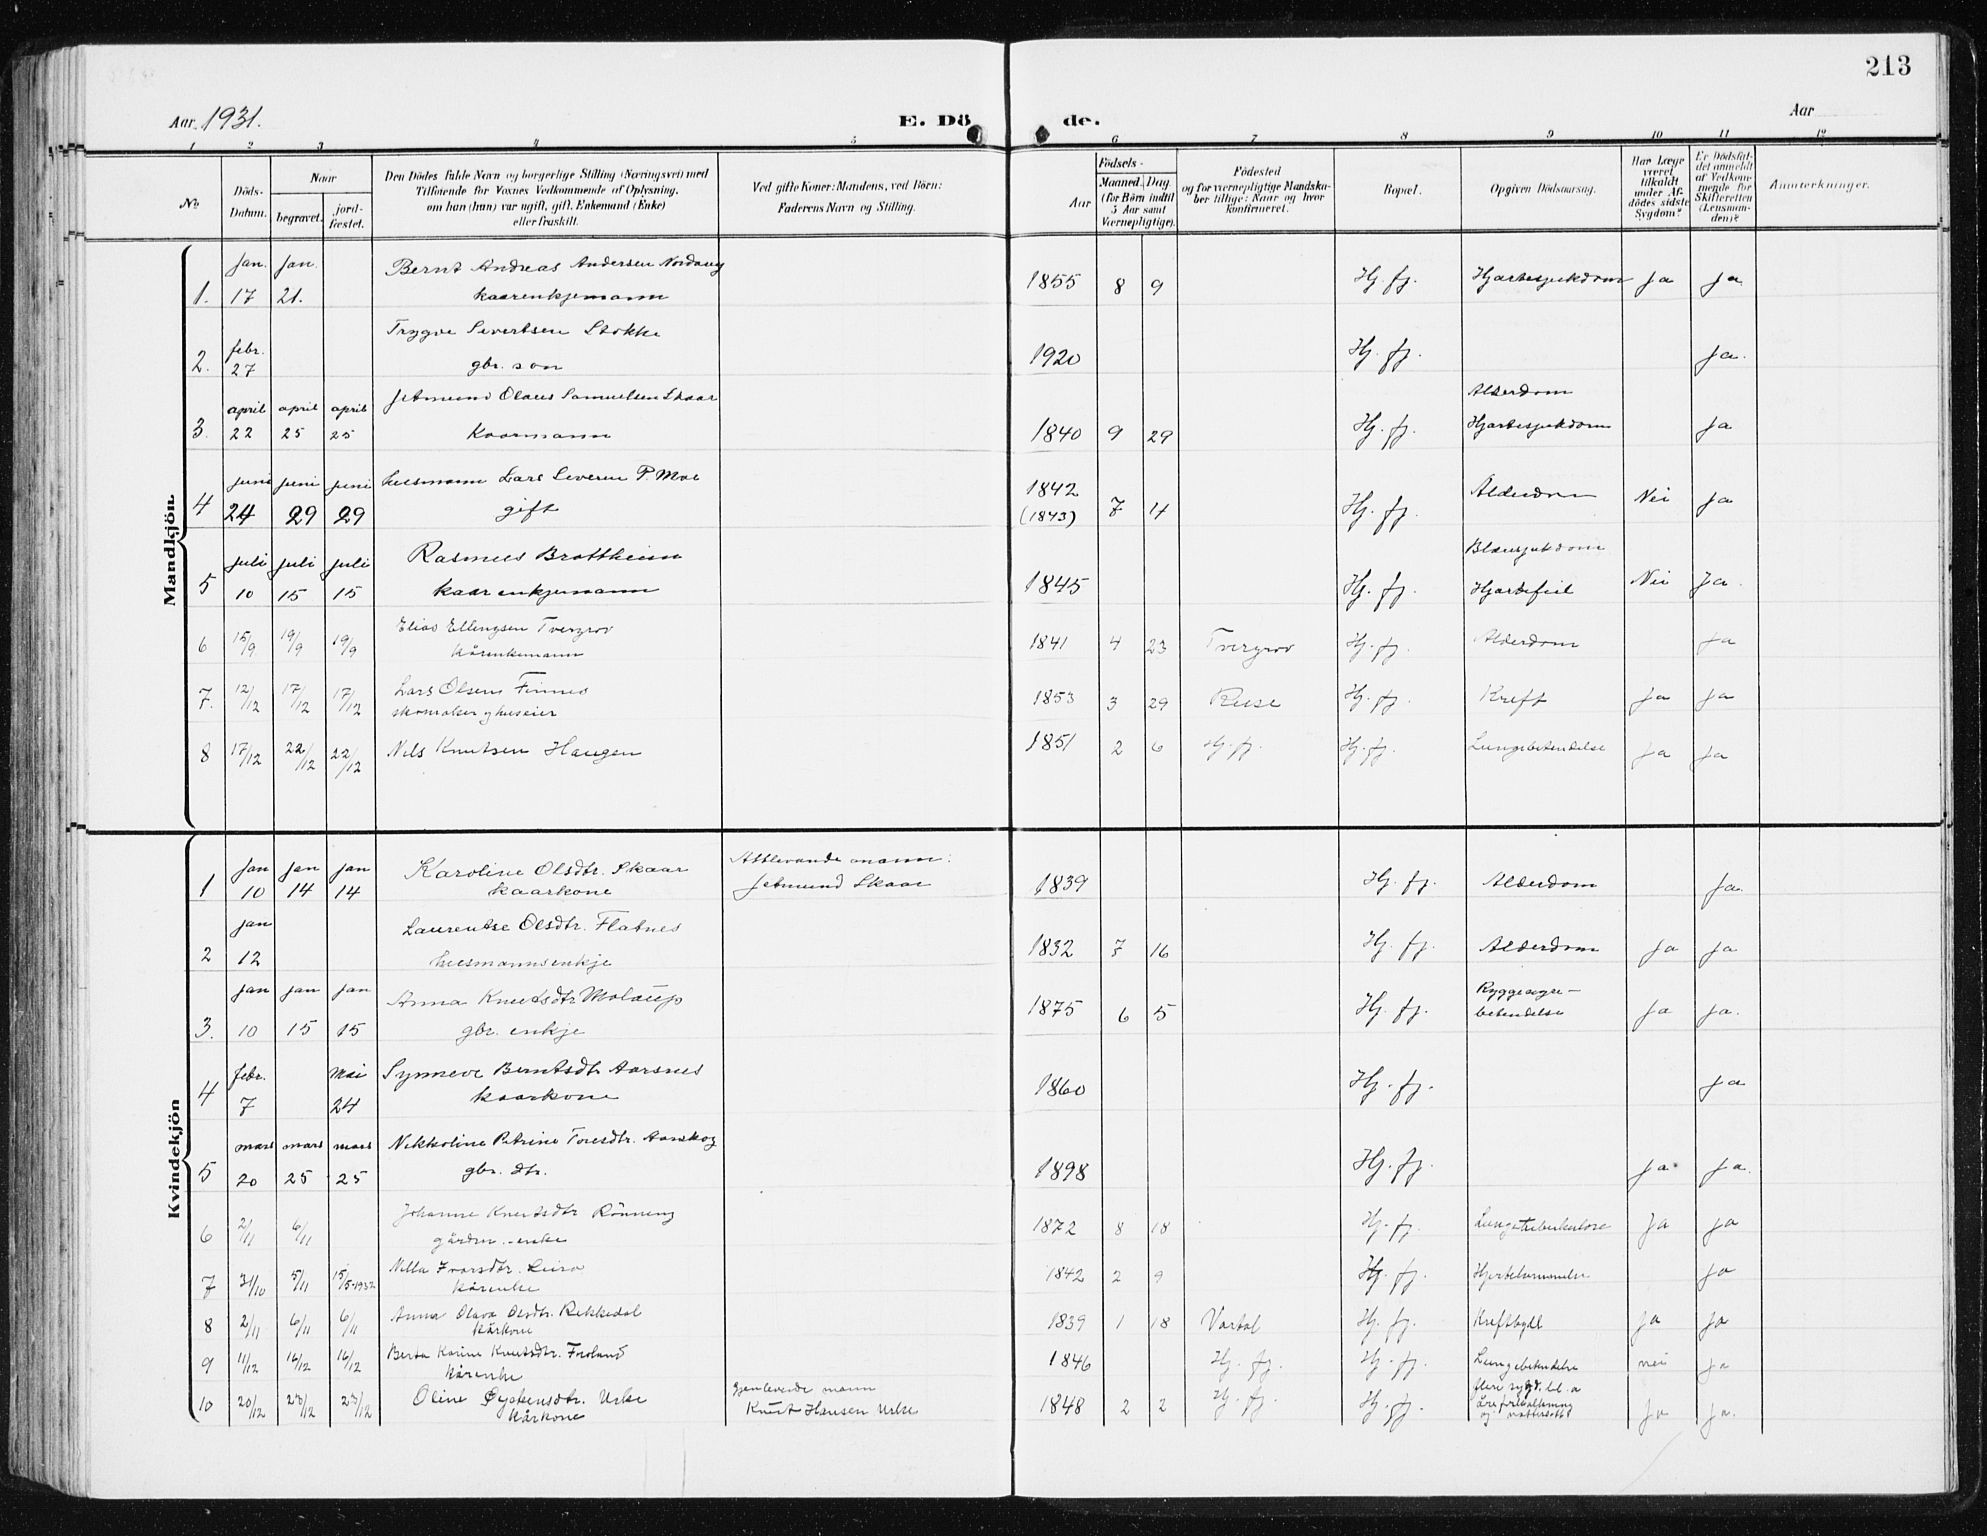 213
Aar 1931.
E. Dö
de.
Aar
1 2 3 4 5 6 7 8 9 10 11 12
No
Döds-Datum.
Naar
begravet.
jord-fæstet.
Den Dödes fulde Navn og borgerlige Stilling (Næringsvei) med
Tilföiende for Voxnes Vedkommende af Oplysning,
om han (hun) var ugift, gift, Enkemand (Enke)
eller fraskilt.
Ved gifte Koner: Mandens, ved Börn:
Faderens Navn og Stilling.
Födsels-
Aar
Maaned. Dag.
(for Börn indtil
5 Aar samt
Værnepligtige).
Födested
og for værnepligtige Mandska-
ber tillige: Naar og hvor
konfirmeret.
Bopæl.
Opgiven Dödsaarsag.
Har Læge
været
tilkaldt
under Af-
dödes sidste
Sygdom?
Er Dödsfal-
det anmeldt
af Vedkom-
mende for
Skifteretten
(Lensman-
den)?
Anmerkninger.
Mandkjön
Jan. Jan. Bernt Andreas Andersen Nordang
1. 17 21. kaarenkjemann 1855 8 9 Hj. fj. Hjartesjukdom Ja Ja
Trygve Severtsen Stokke
2. febr. 27 gbr. son 1920 Hj. fj. Ja.
april april april Jetmund Olaus Samuelsen Skaar Alderdom
3. 22 25 25 Kaarmann 1840 9 29 Hj. fj. Hjartesjukdom Ja
juni juni juni husmann Lars Severin P. Moe 1842
4 24 29 29 gift (1843) 7 4 Hj. fj. Alderdom Nei Ja
juli juli juli Rasmus Brattheim Blæresjukdom
5 10 15 15 kaarenkjemann 1845 Hj. fj. Hjartefeil Nei Ja.
6 15/9 19/9 19/9 Elias Ellingsen Tvergrov 1841 4 23 Tvergrov Hj. fj. Alderdom Ja
kårenkemann
7. 12/12 17/12 17/12 Lars Olsen Finnes 1853 3 29 Ruse Hj. fj. Kreft Ja Ja
skomaker og huseier
8 17/12 22/12 22/12 Nils Knutsen Haugen 1851 2 6 Hj. fj. Hj. fj. Lungebetendelse Ja Ja
Kvindekjön
Jan Jan Jan Karoline Olsdtr. Skaar Attlevande mann:
1 10 14 14 kaarkone Jetmund Skaar 1839 Hj. fj. Alderdom Ja.
Jan Laurentse Olsdtr. Flatnes
2 12 husmannsenkje 1832 7 16 Hj. fj. Alderdom Ja Ja
Jan Jan Jan Anna Knutsdtr Molaup Ryggmargs-
3. 10 15 15 gbr. enkje 1875 6 5 Hj. fj. betendelse Ja Ja.
febr. Mai Synneve Berntsdtr Aarsnes
4 7 24 kaarkone 1860 Hj. fj. Ja
mars mars mars Nikkoline Petrine Toresdtr. Aarskog
5 20 25 25 gbr. dtr. 1898 Hj. fj. Ja. Ja.
6 2/11 6/11 Johanne Knutsdtr Rönning 1872 8 18 Hj. fj. Lungetuberkulose Ja Ja
gårdm.-enke
7 31/10 5/11 15/5-1932 Nilla Ivarsdtr. Leira 1842 2 9 Hj. fj. Hjertelammelse Ja
kårenke
8 2/11 6/11 6/11 Anna Olava Olsdtr. Rekkedal 1839 1 18 Vartal Hj. fj. Kreftbyll Ja Ja
kårkone
9 11/12 16/12 16/12 Berta Karine Knutsdtr. Froland 1846 Hj. fj. Hj. fj. Lungebetendelse nei Ja
kårenke
10 20/12 23/12 23/12 Oline Öysteinsdtr. Urke gjenlevende mann 1848 2 2 Hj. fj. Hj. fj. flere sygd. bl. a
kårkone Knut Hansen Urke åreforkalkning Ja Ja.
og vattersott